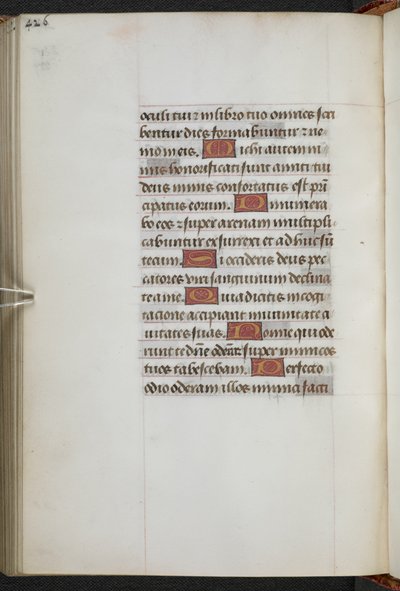 426
oculi tui ⁊ in libro tuo omnes scri
bentur dies formabuntur ⁊ ne
mo in eis. Michi autem ni
mis honorificati sunt amici tui
deus nimis confortatus est prī
cipatus eorum. Dinumera
bo eos ⁊ super arenam multipli
cabuntur exsurrexi et adhuc sū
tecum. Si occideris deus pec
catores viri sanguinum declina
te a me. Quia dicitis in cogi
tacione accipiant in vanitate ci
uitates suas. Nonne qui ode
runt te dn̄e oderā super inimicos
tuos tabescebam. Perfecto
odio oderam illos inimici facti